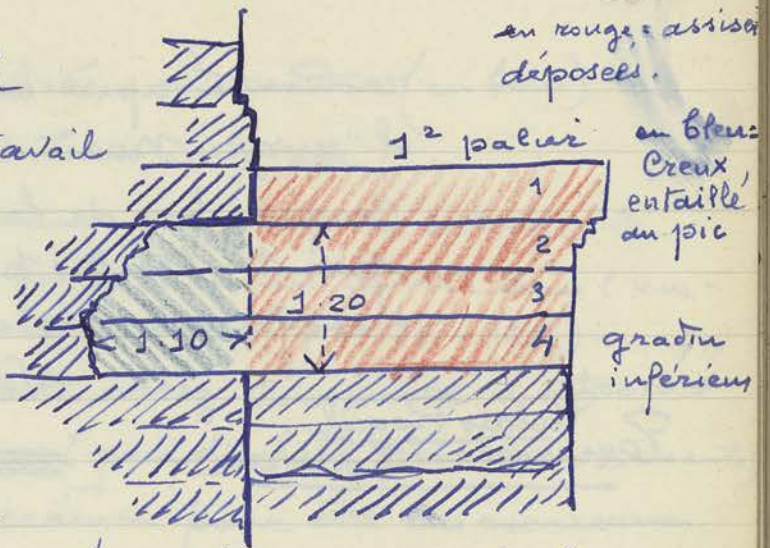 en rouge : assises
déposées.
travail
1ᵉ palier
en bleu :
Creux
entaillé
au pic
1
2
3
4
1.20
1.10
gradin
inférieur